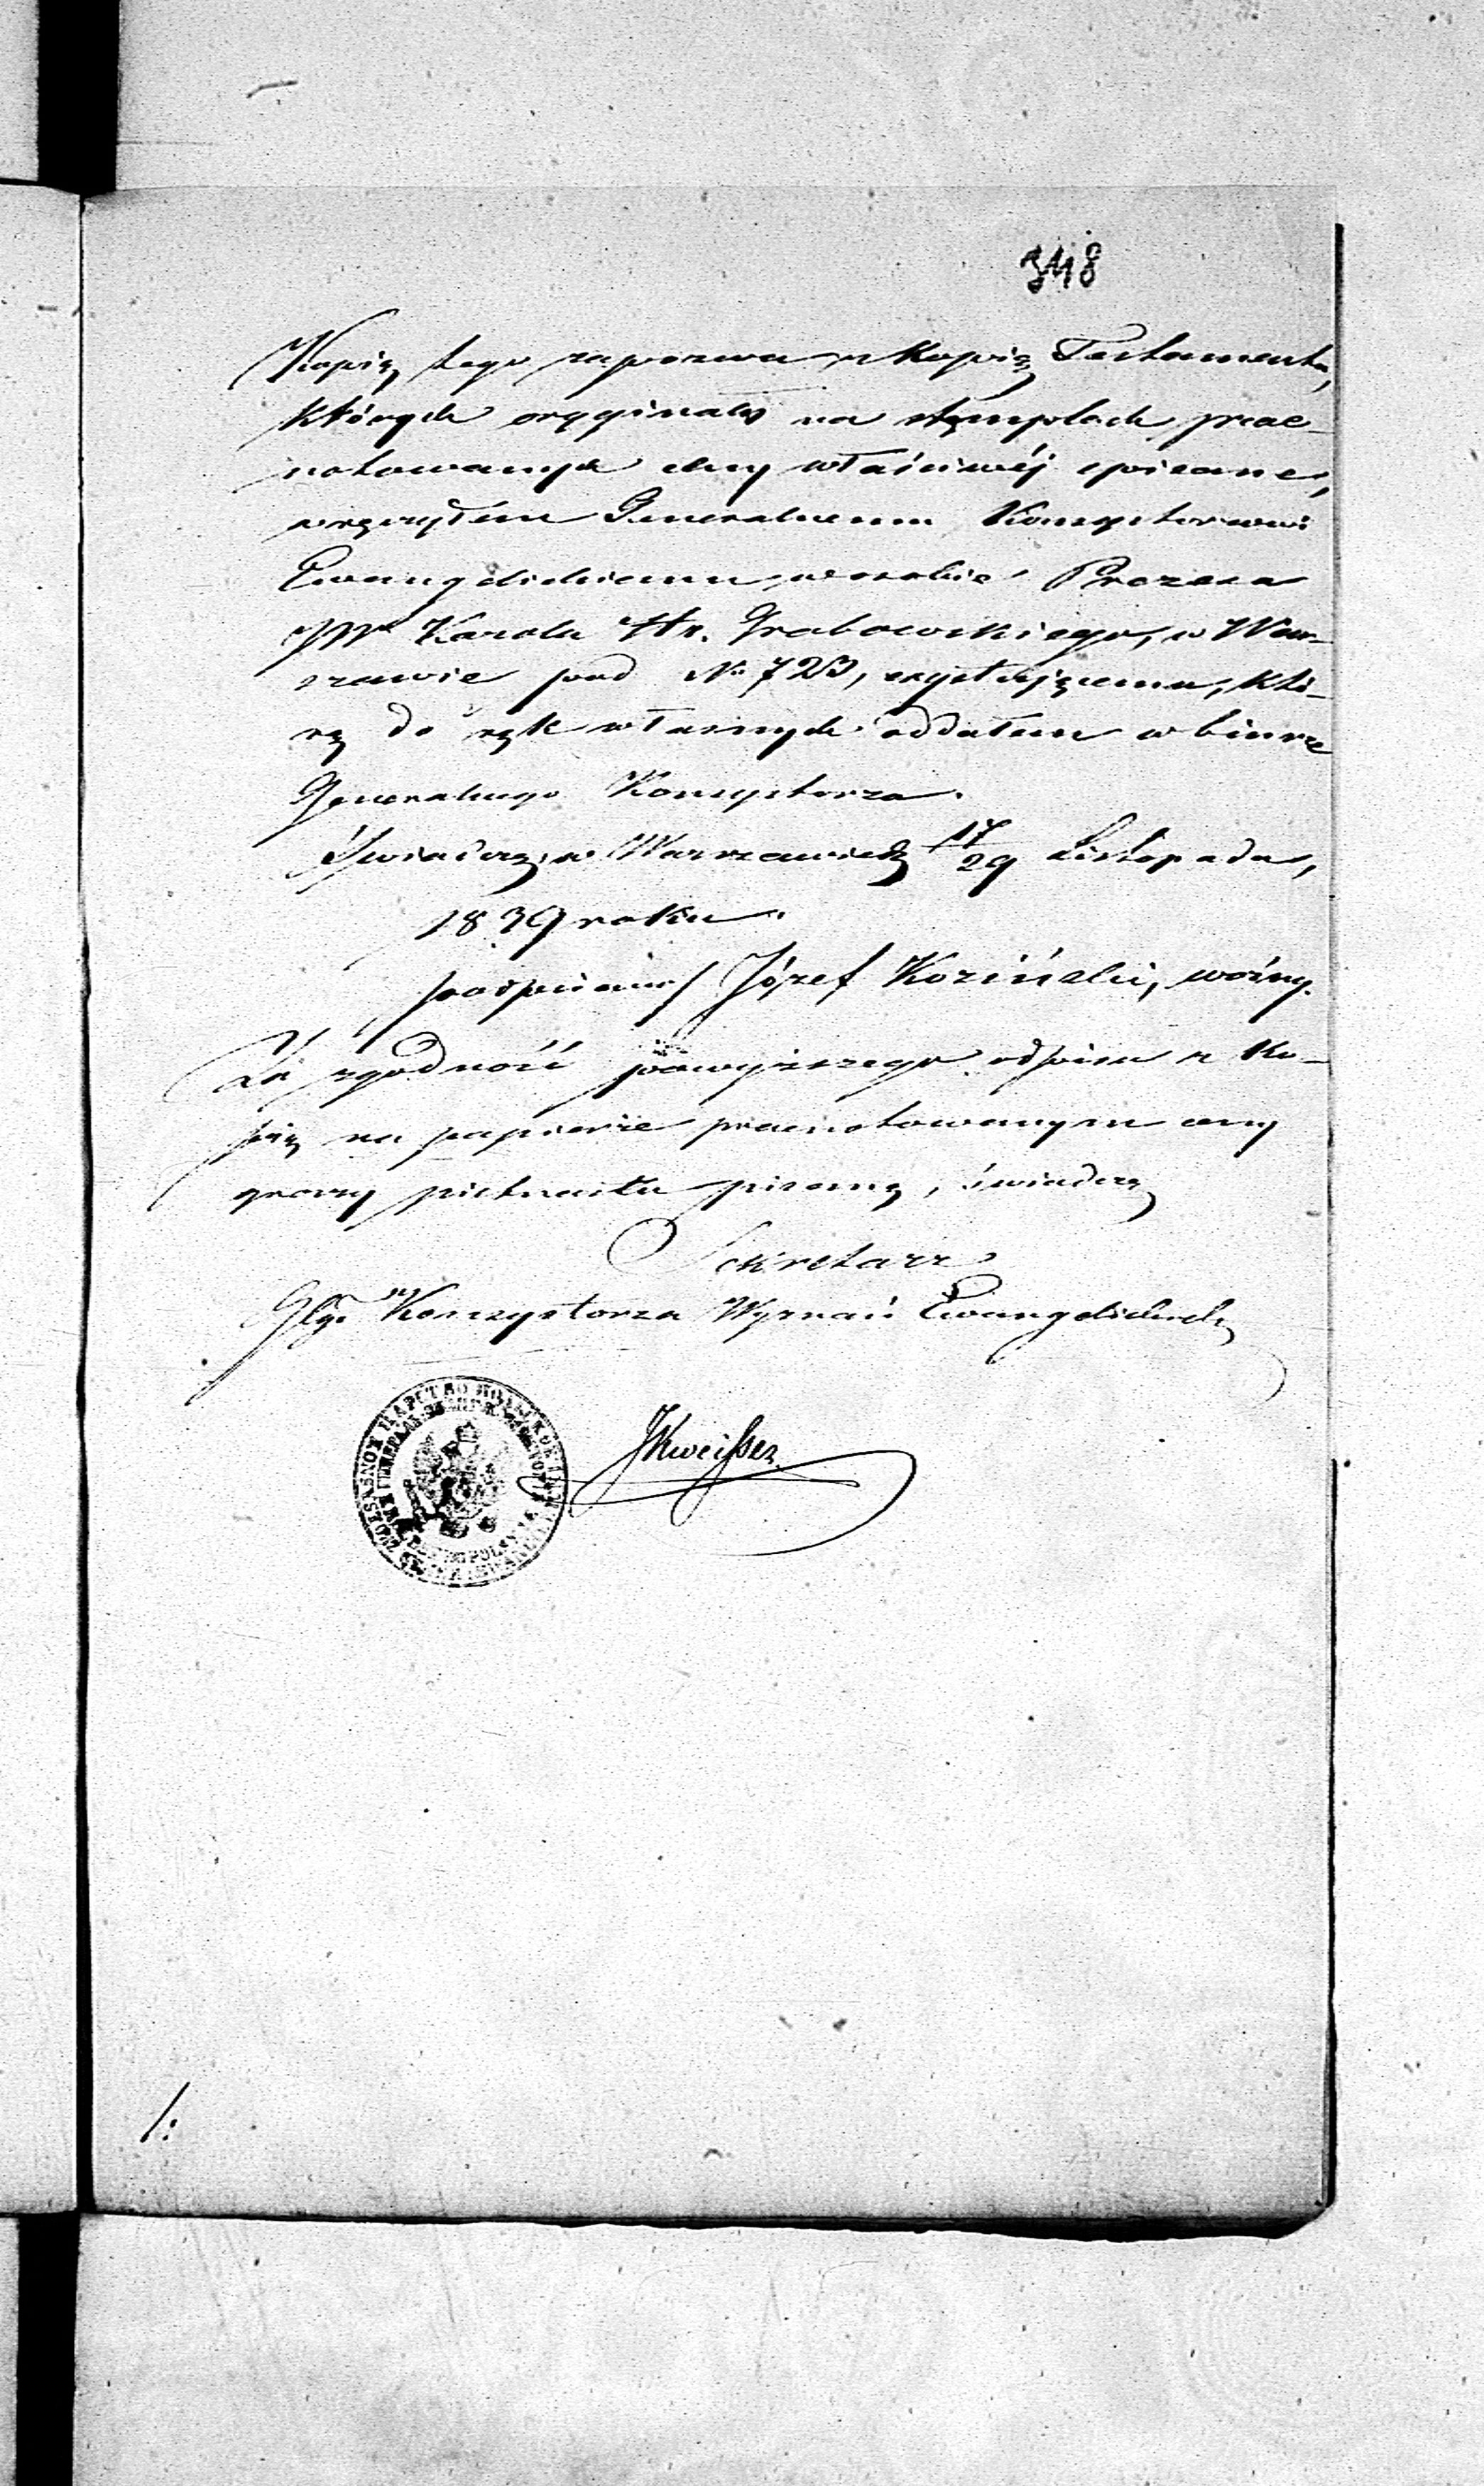 348
Kopię tego zapozwu z Kopią Testamentu,
których oryginały na stęmplach prae-
notowanych ceny właściwéj spisane,
wręczyłem Generalnemu Konsystorzowi
Ewangelickiemu, w osobie Prezesa
JW Karola Hr. Grabowskiego, w War-
szawie pod No 723, exystującemu, któ-
rą do rąk własnych oddałem w biurze
Generalnego Konsystorza.
Świadczę, w Warszawie d. 17/29 Listopada,
1839 roku.
podpisano/ Józef Koziński, woźny.
Za zgodność powyższego odpisu z Ko-
pią na papierze praenotowanym ceny
groszy pietnastu pisaną, świadczę
Sekretarz
Glgo Konsystorza Wyznań Ewangelickich
ЦАРСТВО ПОЛЬСКОЕ
/: